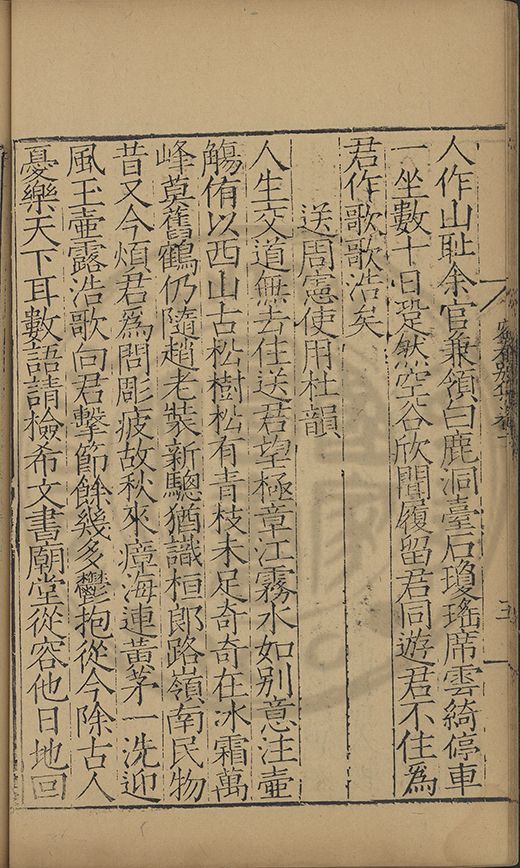 人作山耻余官兼領白鹿洞臺石瓊瑤席雲綺停車
一坐數十日跫然空谷欣聞履留君同遊君不住爲
君作歌歌浩矣
送周憲使用杜韻
人生交道無去住送君望極章江霧水如别意注壷
觴侑以西山古松樹松有青枝未足奇奇在冰霜萬
峰莫舊鶴仍隨趙老裝新驄猶識桓郎路嶺南民物
昔又今煩君爲問彫疲故秋來瘴海連黃茅一洗迎
風玉壷露浩歌向君擊節餘幾多鬱抱從今除古人
憂樂天下耳數語請檢希文書廟堂從容他日地回